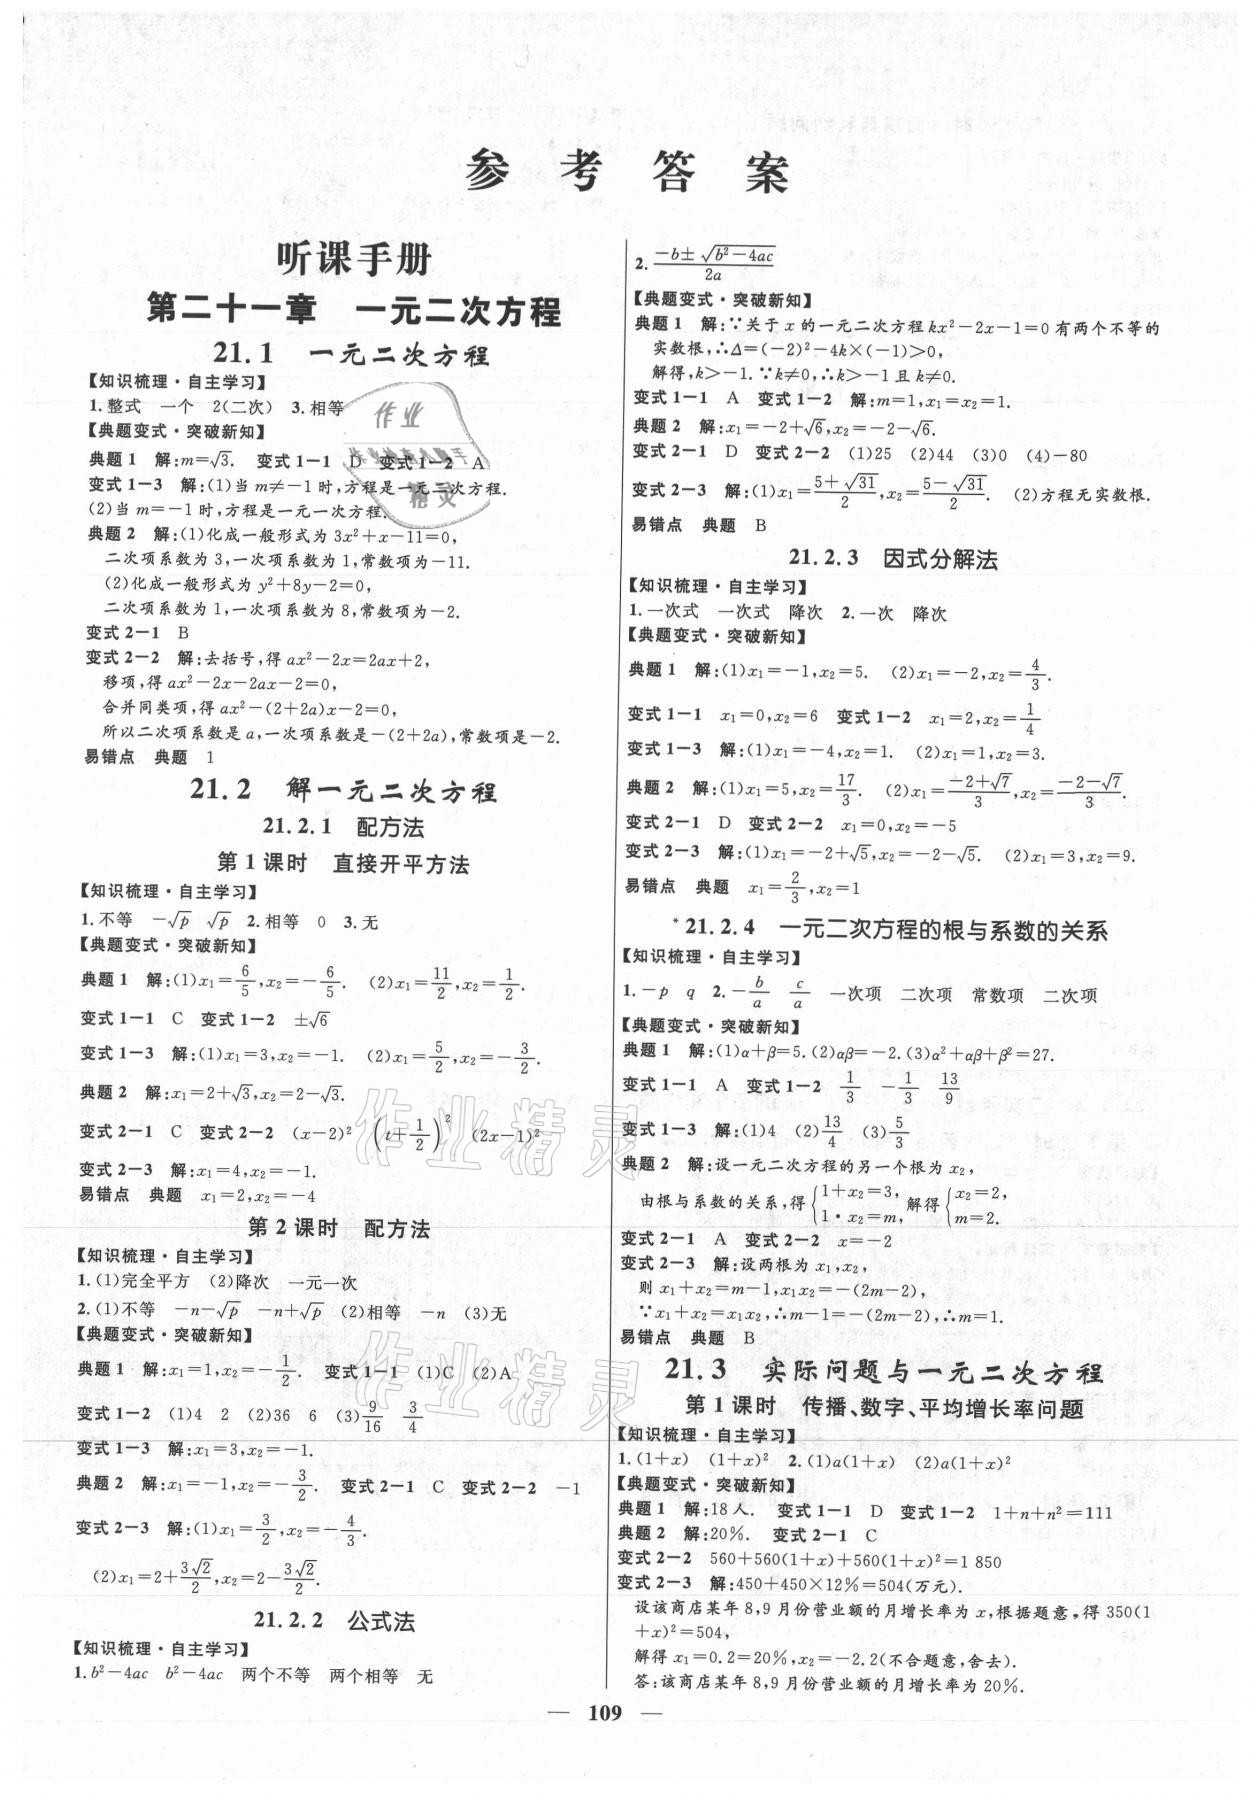 参 考 答 案
听课手册
第二十一章　一元二次方程
21.1　一元二次方程
【知识梳理·自主学习】
1.整式　一个　2(二次)　3.相等
【典题变式·突破新知】
典题1　解:m=√3.　变式1-1　D　变式1-2　A
变式1-3　解:(1)当 m≠-1时,方程是一元二次方程.
(2)当 m=-1时,方程是一元一次方程.
典题2　解:(1)化成一般形式为 3x²+x-11=0,
二次项系数为3,一次项系数为1,常数项为-11.
(2)化成一般形式为 y²+8y-2=0,
二次项系数为1,一次项系数为8,常数项为-2.
变式2-1　B
变式2-2　解:去括号,得 ax²-2x=2ax+2,
移项,得 ax²-2x-2ax-2=0,
合并同类项,得 ax²-(2+2a)x-2=0,
所以二次项系数是a,一次项系数是-(2+2a),常数项是-2.
易错点　典题　1
21.2　解一元二次方程
21.2.1　配方法
第1课时　直接开平方法
【知识梳理·自主学习】
1.不等　-√p　√p　2.相等　0　3.无
【典题变式·突破新知】
典题1　解:(1)x₁=6/5,x₂=-6/5.　(2)x₁=11/2,x₂=1/2.
变式1-1　C　变式1-2　±√6
变式1-3　解:(1)x₁=3,x₂=-1.　(2)x₁=5/2,x₂=-3/2.
典题2　解:x₁=2+√3,x₂=2-√3.
变式2-1　C　变式2-2　(x-2)²　(t+1/2)²　(2x-1)²
变式2-3　解:x₁=4,x₂=-1.
易错点　典题　x₁=2,x₂=-4
第2课时　配方法
【知识梳理·自主学习】
1.(1)完全平方　(2)降次　一元一次
2.(1)不等　-n-√p　-n+√p　(2)相等　-n　(3)无
【典题变式·突破新知】
典题1　解:x₁=1,x₂=-1/2.　变式1-1　(1)C　(2)A
变式1-2　(1)4　2　(2)36　6　(3)9/16　3/4
变式1-3　解:x₁=3,x₂=-1.
典题2　解:x₁=-1,x₂=-3/2.　变式2-1　C　变式2-2　-1
变式2-3　解:(1)x₁=3/2,x₂=-4/3.
(2)x₁=2+3√2/2,x₂=2-3√2/2.
21.2.2　公式法
【知识梳理·自主学习】
1.b²-4ac　b²-4ac　两个不等　两个相等　无
2.(-b±√(b²-4ac))/2a
【典题变式·突破新知】
典题1　解:∵关于x的一元二次方程kx²-2x-1=0有两个不等的
实数根,∴Δ=(-2)²-4k×(-1)>0,
解得,k>-1.∵k≠0,∴k>-1且k≠0.
变式1-1　A　变式1-2　解:m=1,x₁=x₂=1.
典题2　解:x₁=-2+√6,x₂=-2-√6.
变式2-1　D　变式2-2　(1)25　(2)44　(3)0　(4)-80
变式2-3　解:(1)x₁=(5+√31)/2,x₂=(5-√31)/2.　(2)方程无实数根.
易错点　典题　B
21.2.3　因式分解法
【知识梳理·自主学习】
1.一次式　一次式　降次　2.一次　降次
【典题变式·突破新知】
典题1　解:(1)x₁=-1,x₂=5.　(2)x₁=-2,x₂=4/3.
变式1-1　x₁=0,x₂=6　变式1-2　x₁=2,x₂=1/4
变式1-3　解:(1)x₁=-4,x₂=1.　(2)x₁=1,x₂=3.
典题2　解:(1)x₁=5,x₂=17/3.　(2)x₁=(-2+√7)/3,x₂=(-2-√7)/3.
变式2-1　D　变式2-2　x₁=0,x₂=-5
变式2-3　解:(1)x₁=-2+√5,x₂=-2-√5.　(2)x₁=3,x₂=9.
易错点　典题　x₁=2/3,x₂=1
*21.2.4　一元二次方程的根与系数的关系
【知识梳理·自主学习】
1.-p　q　2.-b/a　c/a　一次项　二次项　常数项　二次项
【典题变式·突破新知】
典题1　解:(1)α+β=5.(2)αβ=-2.(3)α²+αβ+β²=27.
变式1-1　A　变式1-2　1/3　-1/3　13/9
变式1-3　解:(1)4　(2)13/4　(3)5/3
典题2　解:设一元二次方程的另一个根为x₂,
由根与系数的关系,得{1+x₂=3, 1·x₂=m, 解得{x₂=2, m=2.
变式2-1　A　变式2-2　x=-2
变式2-3　解:设两根为x₁,x₂,
则x₁+x₂=m-1,x₁x₂=-(2m-2),
∵x₁+x₂=x₁x₂,∴m-1=-(2m-2),∴m=1.
易错点　典题　B
21.3　实际问题与一元二次方程
第1课时　传播、数字、平均增长率问题
【知识梳理·自主学习】
1.(1+x)　(1+x)²　2.(1)a(1+x)　(2)a(1+x)²
【典题变式·突破新知】
典题1　解:18人.　变式1-1　D　变式1-2　1+n+n²=111
典题2　解:20%.　变式2-1　C
变式2-2　560+560(1+x)+560(1+x)²=1 850
变式2-3　解:450+450×12%=504(万元).
设该商店某年8,9月份营业额的月增长率为x,根据题意,得350(1
+x)²=504,
解得x₁=0.2=20%,x₂=-2.2(不合题意,舍去).
答:该商店某年8,9月份营业额的月增长率为20%.
— 109 —
作业
精灵
作业精灵
作业精灵